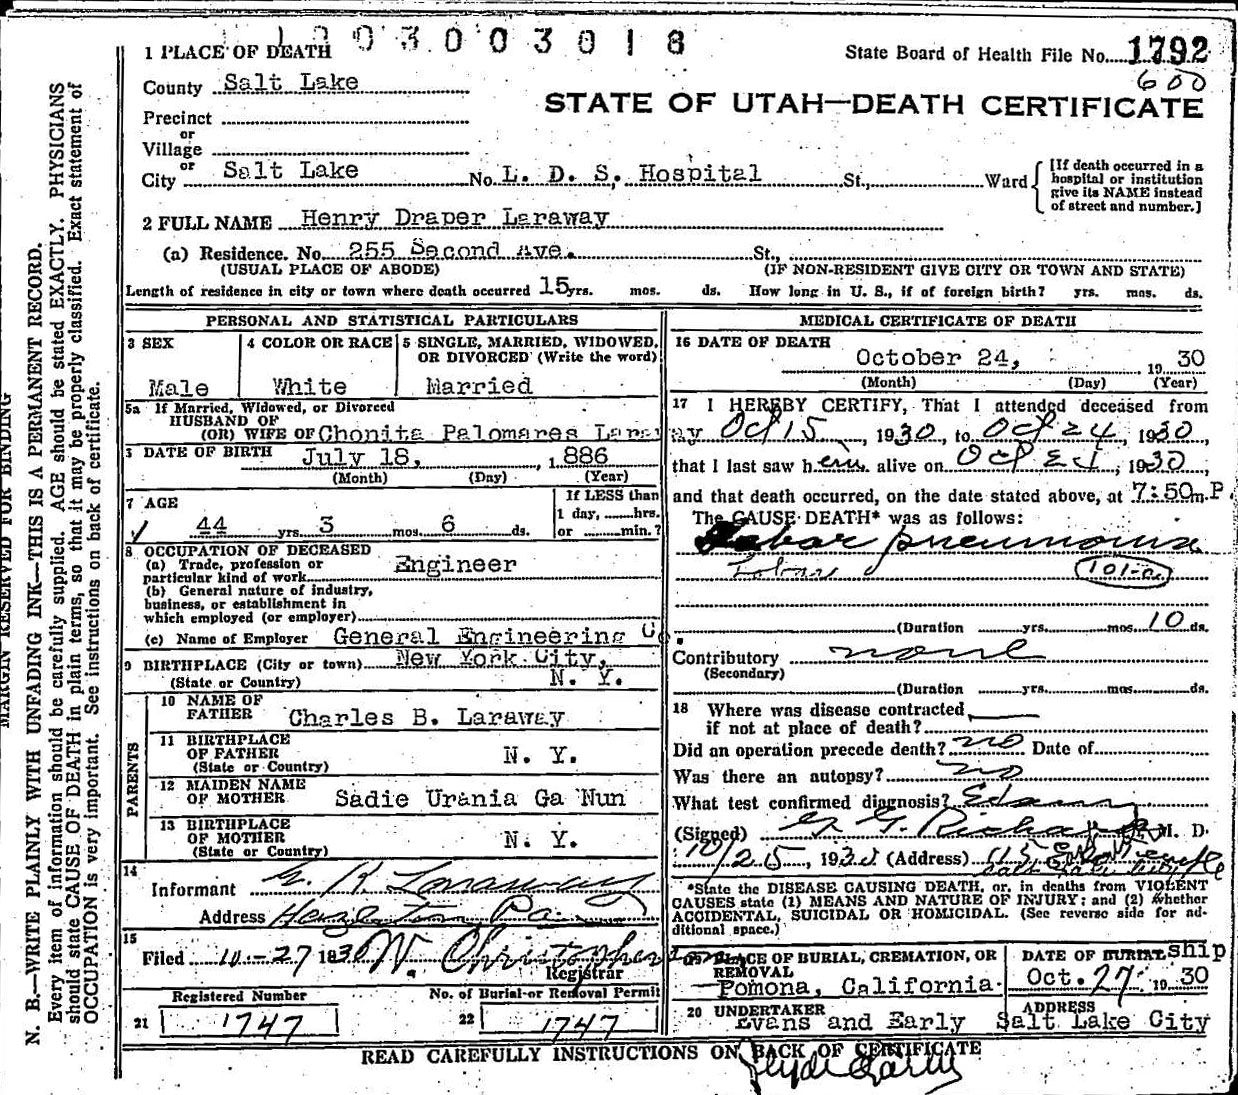 1003003018
1 PLACE OF DEATH
State Board of Health File No. 1792
600
County Salt Lake
STATE OF UTAH—DEATH CERTIFICATE
Precinct
or
Village
or
City Salt Lake No. L. D. S. Hospital St., Ward
[If death occurred in a
hospital or institution
give its NAME instead
of street and number.]
2 FULL NAME Henry Draper Laraway
(a) Residence. No. 255 Second Ave. St.,
(USUAL PLACE OF ABODE) (IF NON-RESIDENT GIVE CITY OR TOWN AND STATE)
Length of residence in city or town where death occurred 15 yrs. mos. ds. How long in U. S., if of foreign birth? yrs. mos. ds.
PERSONAL AND STATISTICAL PARTICULARS
3 SEX 4 COLOR OR RACE 5 SINGLE, MARRIED, WIDOWED, OR DIVORCED (Write the word)
Male White Married
5a If Married, Widowed, or Divorced
HUSBAND OF
(OR) WIFE OF Chonita Palomares Laraway
DATE OF BIRTH July 18, 1886
(Month) (Day) (Year)
7 AGE If LESS than
1 day, hrs.
44 yrs. 3 mos. 6 ds. or min.?
8 OCCUPATION OF DECEASED
(a) Trade, profession or
particular kind of work Engineer
(b) General nature of industry,
business, or establishment in
which employed (or employer)
(c) Name of Employer General Engineering Co.
9 BIRTHPLACE (City or town) New York City,
(State or Country) N. Y.
PARENTS
10 NAME OF
FATHER Charles B. Laraway
11 BIRTHPLACE
OF FATHER N. Y.
(State or Country)
12 MAIDEN NAME
OF MOTHER Sadie Urania Ga Nun
13 BIRTHPLACE
OF MOTHER N. Y.
(State or Country)
14
Informant G. K. Laraway
Address
15
Filed 10-27 1930 W. Christopherson
Registrar
Registered Number No. of Burial or Removal Permit
21 1747 22 1747
MEDICAL CERTIFICATE OF DEATH
16 DATE OF DEATH
October 24, 1930
(Month) (Day) (Year)
17 I HEREBY CERTIFY, That I attended deceased from
Oct 15, 1930, to Oct 24, 1930,
that I last saw him alive on Oct 24, 1930,
and that death occurred, on the date stated above, at 7:50 m. P.
The CAUSE DEATH* was as follows:
Lobar pneumonia
Lobar 101-a
(Duration yrs. mos. 10 ds.
Contributory none
(Secondary)
(Duration yrs. mos. ds.
18 Where was disease contracted
if not at place of death?
Did an operation precede death? no Date of
Was there an autopsy? no
What test confirmed diagnosis?
(Signed) G. G. Richards M. D.
10/25, 1930 (Address) 115 E. So. Temple
Salt Lake City
*State the DISEASE CAUSING DEATH, or, in deaths from VIOLENT
CAUSES state (1) MEANS AND NATURE OF INJURY; and (2) whether
ACCIDENTAL, SUICIDAL OR HOMICIDAL. (See reverse side for ad-
ditional space.)
PLACE OF BURIAL, CREMATION, OR
REMOVAL
Pomona, California.
DATE OF BURIAL Ship
Oct. 27, 1930
20 UNDERTAKER ADDRESS
Evans and Early Salt Lake City
READ CAREFULLY INSTRUCTIONS ON BACK OF CERTIFICATE
MARGIN RESERVED FOR BINDING
N. B.—WRITE PLAINLY WITH UNFADING INK—THIS IS A PERMANENT RECORD.
Every item of information should be carefully supplied. AGE should be stated EXACTLY. PHYSICIANS
should state CAUSE OF DEATH in plain terms, so that it may be properly classified. Exact statement of
OCCUPATION is very important. See instructions on back of certificate.